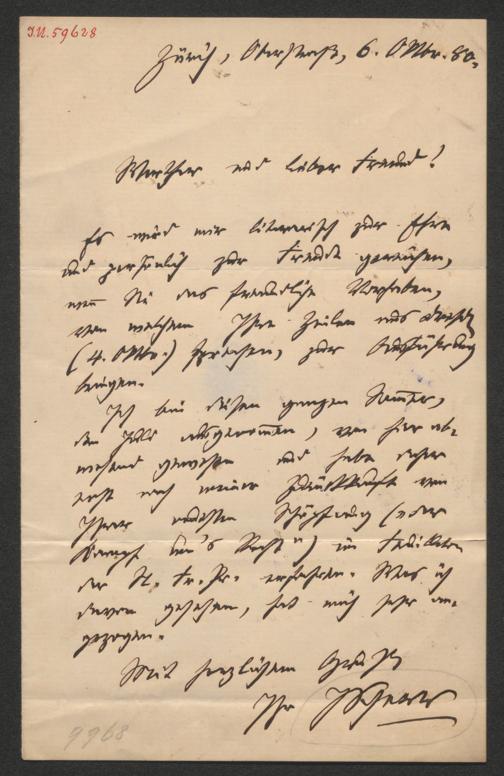 I.N. 59628
Zürich, Oberstraß, 6. Oktbr. 80.
Werther und lieber Freund!
Es wird mir literarisch zur Ehre
und persönlich zur Freude gereichen,
wenn Sie das freundliche Vorhaben,
von welchem Ihre Zeilen aus
(4. Oktbr.) sprechen, zur Ausführung
bringen.
Ich bin diesen ganzen Sommer,
den Juli ausgenommen, von hier ab-
wesend gewesen und habe daher
erst nach meiner Zurückkunft von
Ihrer neusten Schöpfung („Der
Kampf um's Recht") im Feuilleton
der N. Fr. Pr. erfahren. Was ich
davon gesehen, hat mich sehr an-
gezogen.
Mit herzlichem Gruß
Ihr JScherr
9968